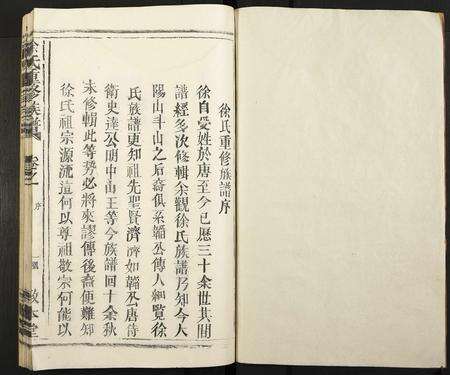 徐氏重修族譜序
徐自受姓於唐至今已歷三十余世其間
譜經多次修輯余觀徐氏族譜乃知今大
陽山斗山之后裔俱系韜公傳人細覽徐
氏族譜更知祖先聖賢濟濟如韜公唐侍
衛史達公明中山王等今族譜回十余秋
未修輯此等势必將來謬傳後裔便難知
徐氏祖宗源流這何以尊祖敬宗何能以
徐氏重修族譜
卷之一
序
敦本堂